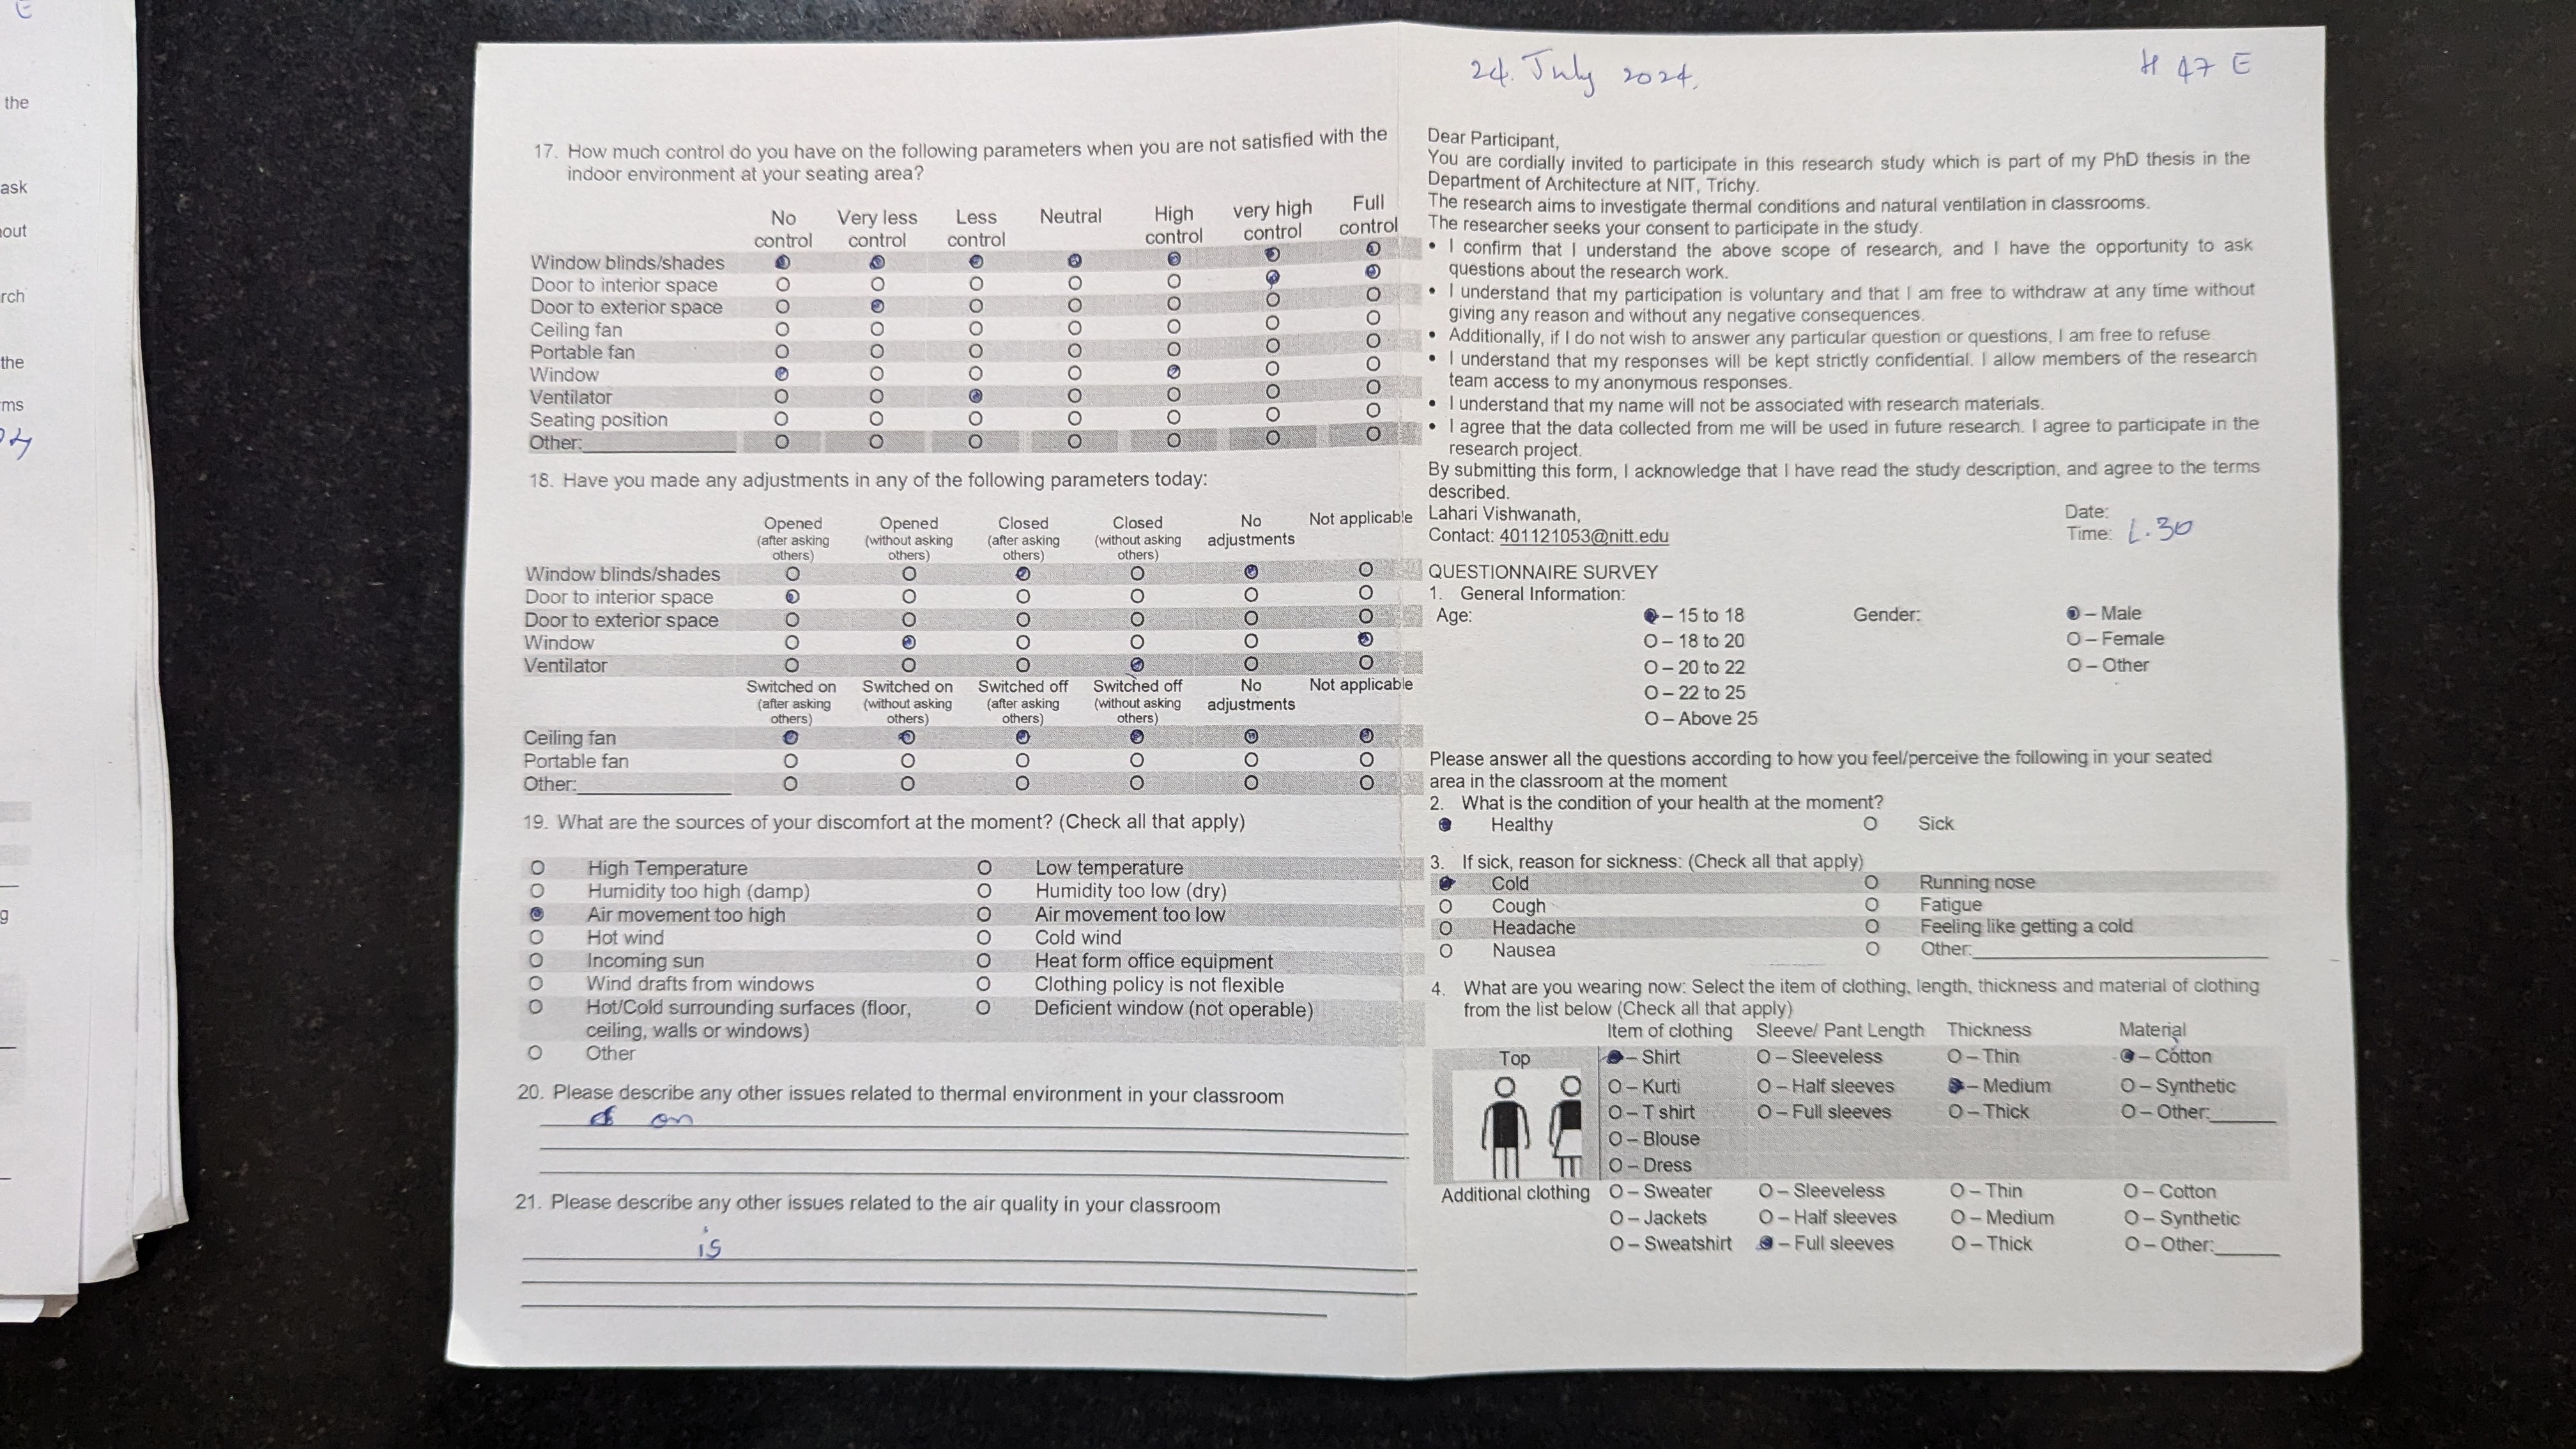 E
the
ask
out
rch
the
ms
g
17. How much control do you have on the following parameters when you are not satisfied with the
indoor environment at your seating area?
No control Very less control Less control Neutral High control very high control Full control
Window blinds/shades
Door to interior space
Door to exterior space
Ceiling fan
Portable fan
Window
Ventilator
Seating position
Other:
18. Have you made any adjustments in any of the following parameters today:
Opened (after asking others) Opened (without asking others) Closed (after asking others) Closed (without asking others) No adjustments Not applicable
Window blinds/shades
Door to interior space
Door to exterior space
Window
Ventilator
Switched on (after asking others) Switched on (without asking others) Switched off (after asking others) Switched off (without asking others) No adjustments Not applicable
Ceiling fan
Portable fan
Other:
19. What are the sources of your discomfort at the moment? (Check all that apply)
High Temperature Low temperature
Humidity too high (damp) Humidity too low (dry)
Air movement too high Air movement too low
Hot wind Cold wind
Incoming sun Heat form office equipment
Wind drafts from windows Clothing policy is not flexible
Hot/Cold surrounding surfaces (floor, Deficient window (not operable)
ceiling, walls or windows)
Other
20. Please describe any other issues related to thermal environment in your classroom
on
21. Please describe any other issues related to the air quality in your classroom
is
24. July 2024. H 47 E
Dear Participant,
You are cordially invited to participate in this research study which is part of my PhD thesis in the
Department of Architecture at NIT, Trichy.
The research aims to investigate thermal conditions and natural ventilation in classrooms.
The researcher seeks your consent to participate in the study.
• I confirm that I understand the above scope of research, and I have the opportunity to ask
questions about the research work.
• I understand that my participation is voluntary and that I am free to withdraw at any time without
giving any reason and without any negative consequences.
• Additionally, if I do not wish to answer any particular question or questions, I am free to refuse
• I understand that my responses will be kept strictly confidential. I allow members of the research
team access to my anonymous responses.
• I understand that my name will not be associated with research materials.
• I agree that the data collected from me will be used in future research. I agree to participate in the
research project.
By submitting this form, I acknowledge that I have read the study description, and agree to the terms
described.
Lahari Vishwanath, Date:
Contact: 401121053@nitt.edu Time: 2.30
QUESTIONNAIRE SURVEY
1. General Information:
Age: – 15 to 18 Gender: – Male
O – 18 to 20 O – Female
O – 20 to 22 O – Other
O – 22 to 25
O – Above 25
Please answer all the questions according to how you feel/perceive the following in your seated
area in the classroom at the moment
2. What is the condition of your health at the moment?
Healthy O Sick
3. If sick, reason for sickness: (Check all that apply)
Cold O Running nose
O Cough O Fatigue
O Headache O Feeling like getting a cold
O Nausea O Other:
4. What are you wearing now: Select the item of clothing, length, thickness and material of clothing
from the list below (Check all that apply)
Item of clothing Sleeve/ Pant Length Thickness Material
Top – Shirt O – Sleeveless O – Thin – Cotton
O – Kurti O – Half sleeves – Medium O – Synthetic
O – T shirt O – Full sleeves O – Thick O – Other:
O – Blouse
O – Dress
Additional clothing O – Sweater O – Sleeveless O – Thin O – Cotton
O – Jackets O – Half sleeves O – Medium O – Synthetic
O – Sweatshirt – Full sleeves O – Thick O – Other: